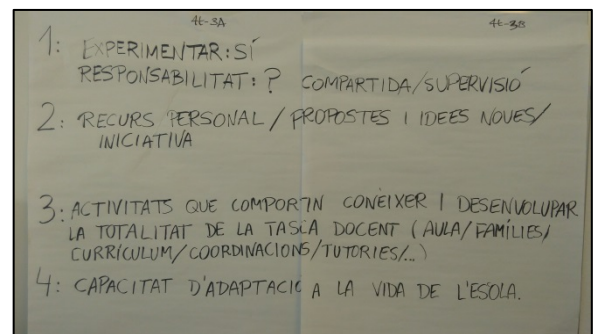 4t-3A 4t-3B
1: EXPERIMENTAR: SÍ
RESPONSABILITAT: ? COMPARTIDA/SUPERVISIÓ
2: RECURS PERSONAL / PROPOSTES I IDEES NOVES/
INICIATIVA
3: ACTIVITATS QUE COMPORTIN CONÈIXER I DESENVOLUPAR
LA TOTALITAT DE LA TASCA DOCENT (AULA/FAMÍLIES/
CURRÍCULUM/COORDINACIONS/TUTORIES/...)
4: CAPACITAT D'ADAPTACIÓ A LA VIDA DE L'ESCOLA.